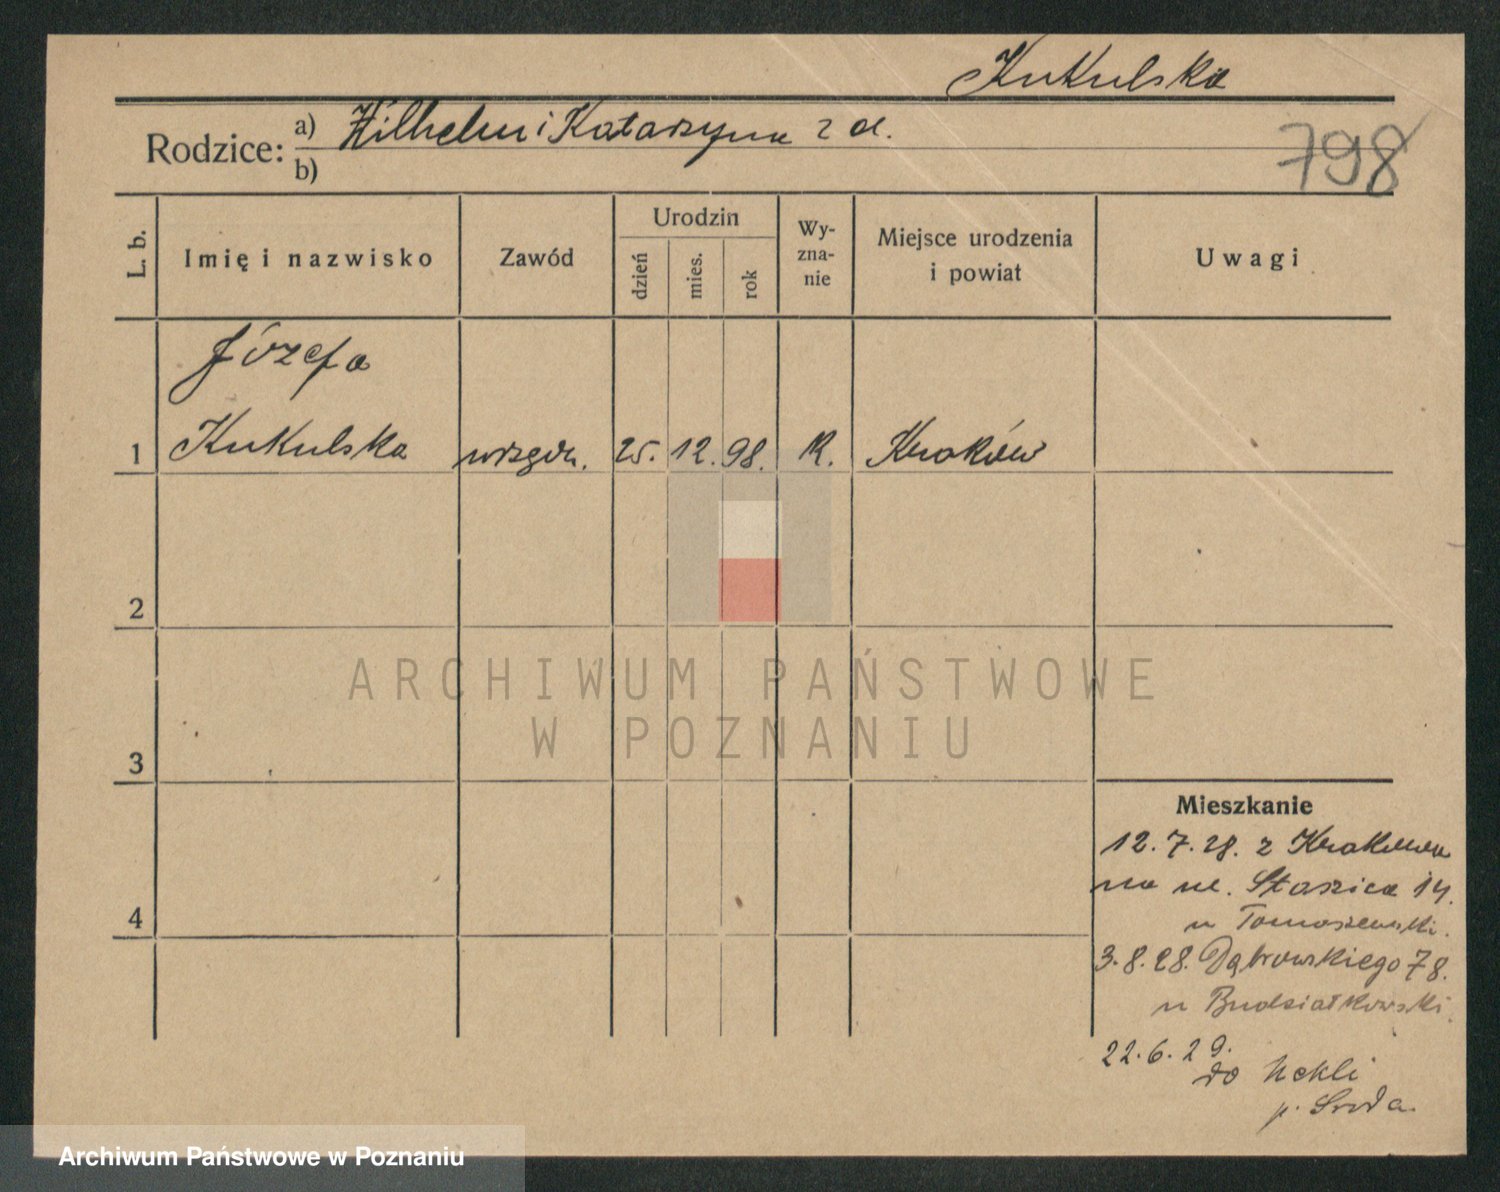 Kukulska
Rodzice: a) Wilhelm i Katarzyna z d.
b)
798
L. b.
Imię i nazwisko
Zawód
Urodzin
dzień
mies.
rok
Wy-
zna-
nie
Miejsce urodzenia
i powiat
Uwagi
Józefa
1 Kukulska urzędn. 25. 12. 98. R. Kraków
2
3
4
Mieszkanie
12. 7. 28. z Krakowa
na ul. Staszica 14.
u Tomaszewski.
3. 8. 28. Dąbrowskiego 78.
u Budziałkowski.
22. 6. 29.
do Nekli
p. Środa.
ARCHIWUM PAŃSTWOWE
W POZNANIU
Archiwum Państwowe w Poznaniu